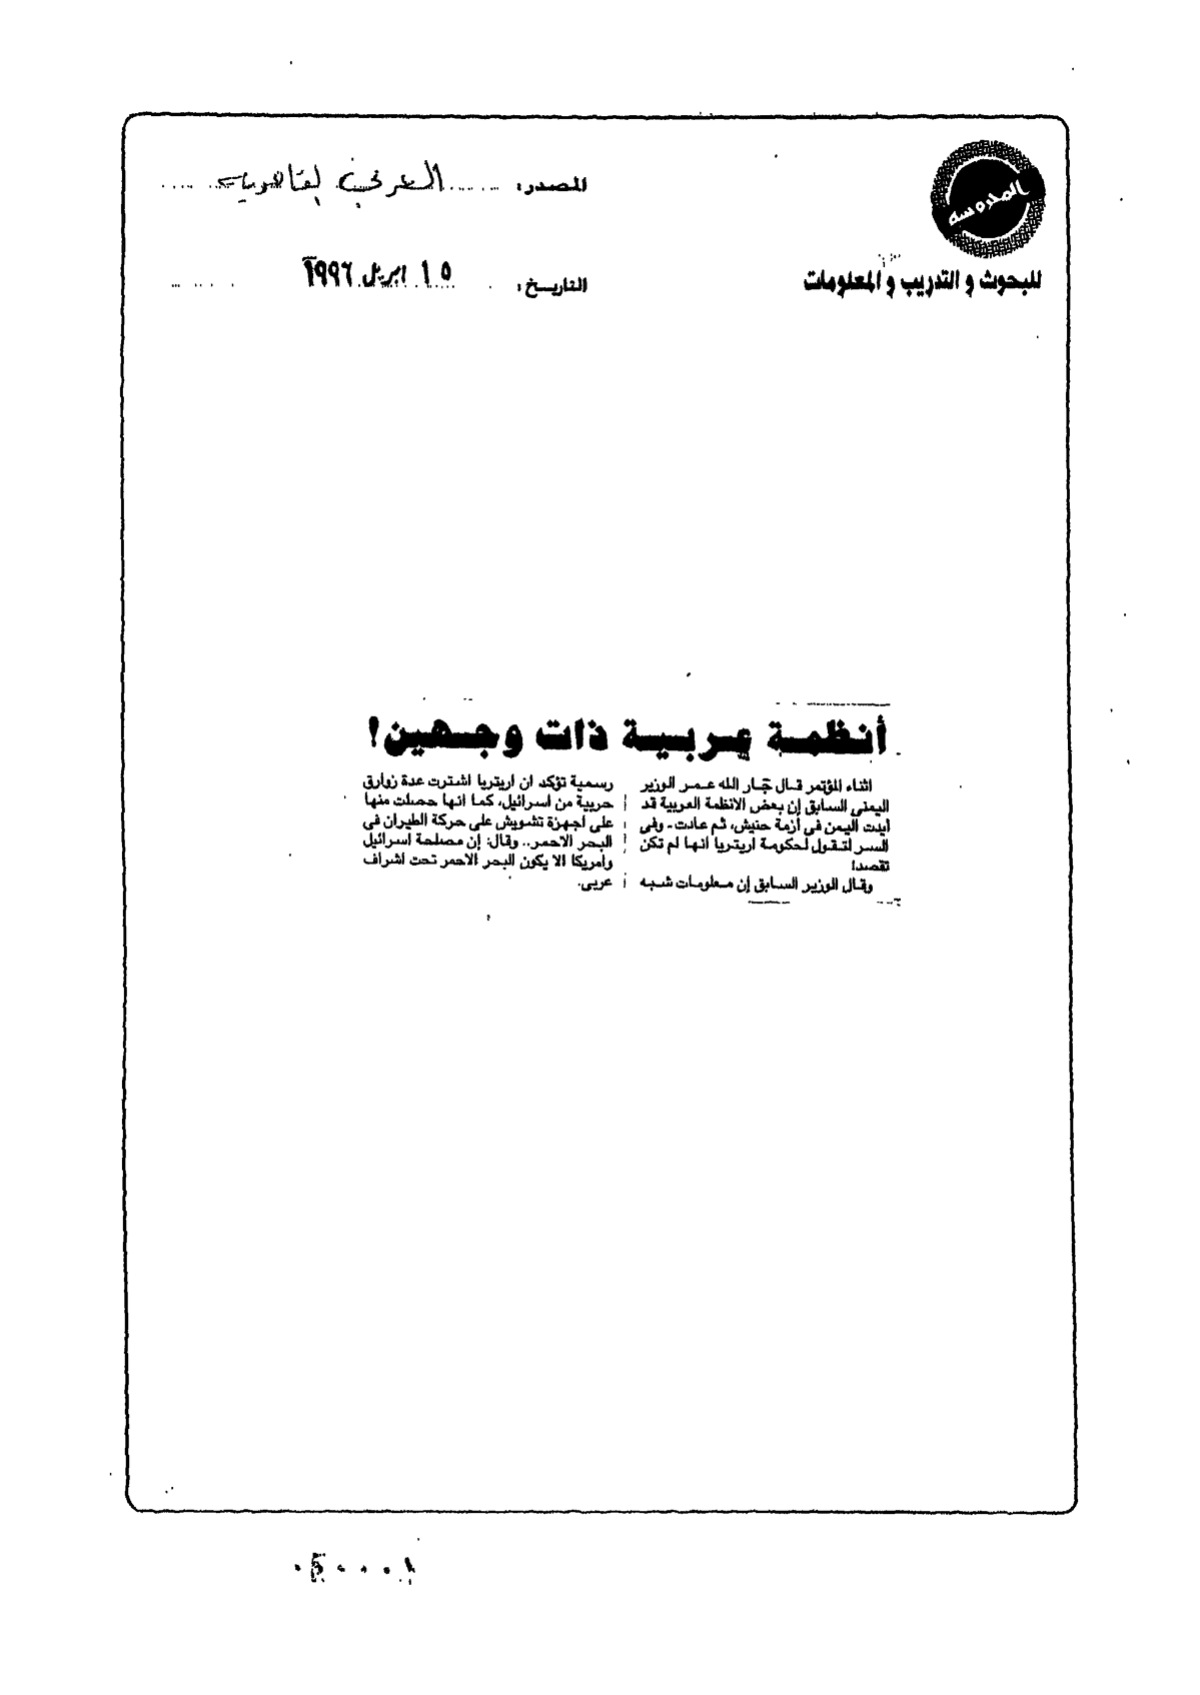 المحروسة
للبحوث و التدريب و المعلومات
المصدر: العربي القاهرية
التاريخ: ١٥ ابريل ١٩٩٦
أنظمة عربية ذات وجهين!
اثناء المؤتمر قال جار الله عمر الوزير
اليمنى السابق إن بعض الانظمة العربية قد
ايدت اليمن فى أزمة حنيش، ثم عادت - وفى
السر لتقول لحكومة اريتريا انها لم تكن
تقصد!
وقال الوزير السابق إن معلومات شبه
رسمية تؤكد ان اريتريا اشترت عدة زوارق
حربية من اسرائيل، كما انها حصلت منها
على أجهزة تشويش على حركة الطيران فى
البحر الاحمر.. وقال: إن مصلحة اسرائيل
وامريكا الا يكون البحر الاحمر تحت اشراف
عربى.